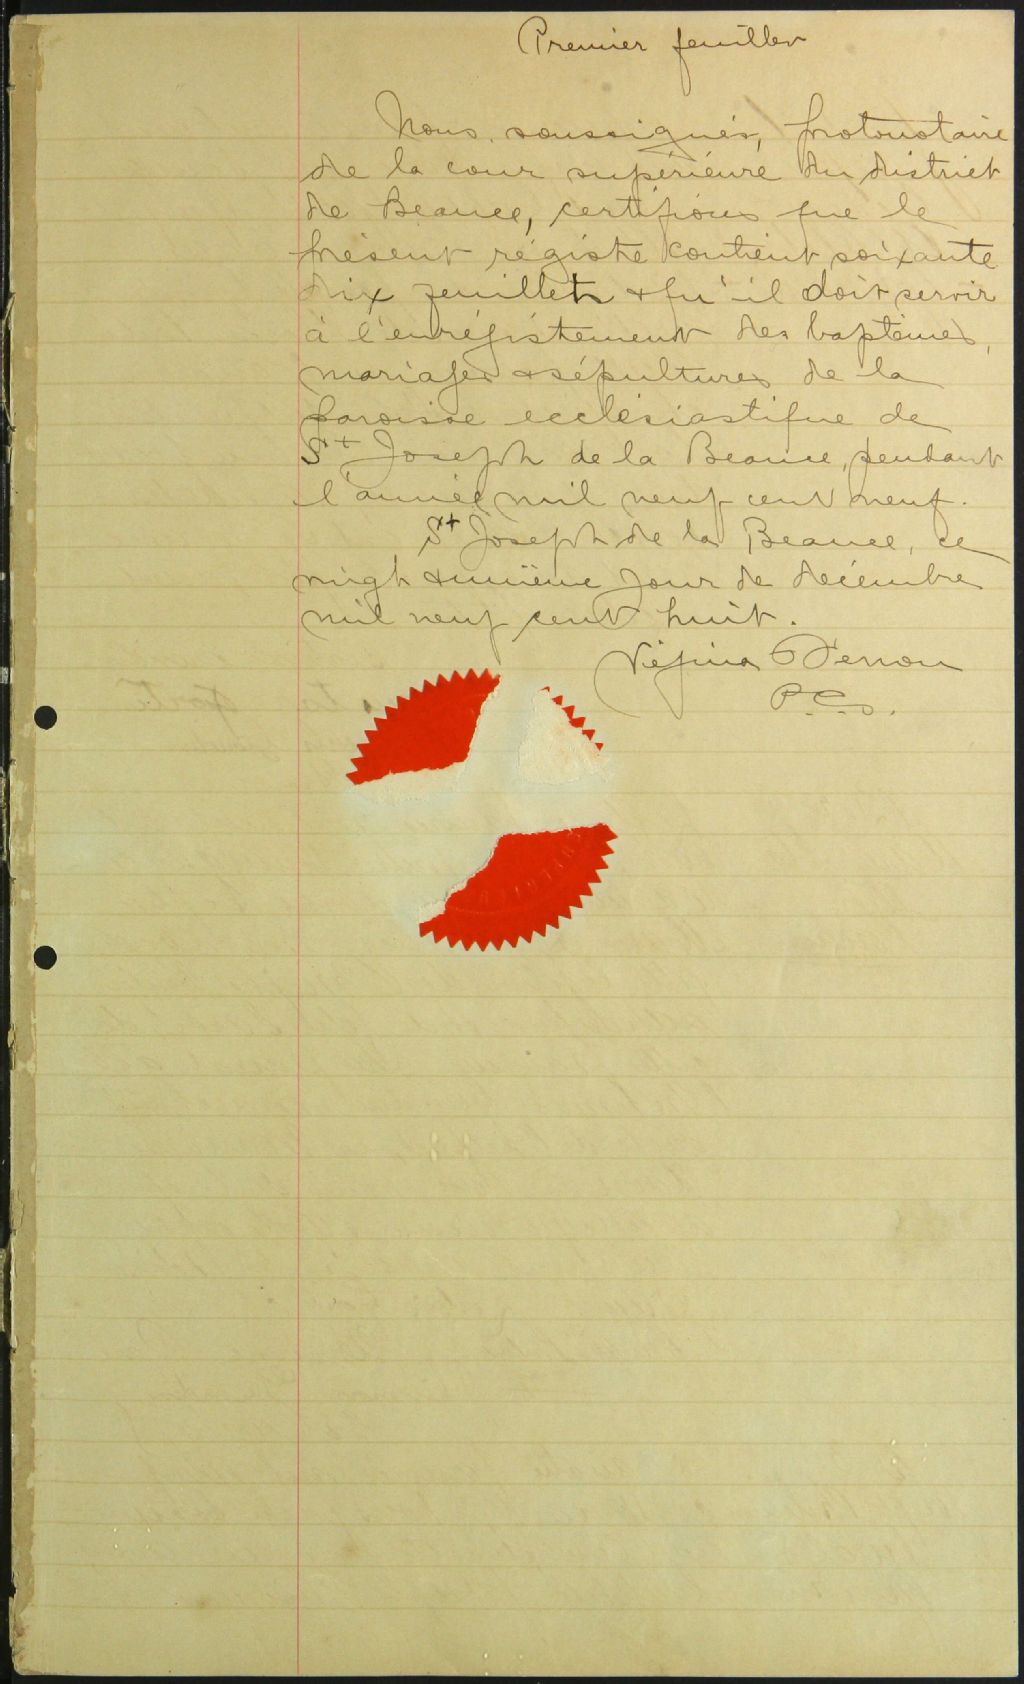 Premier feuillet
Nous, soussignés, protonotaire
de la cour supérieure du district
de Beauce, certifions que le
présent régistre contient soixante
dix feuillets & qu'il doit servir
à l'enrégistrement des baptêmes,
mariages & sépultures de la
paroisse ecclésiastique de
St Joseph de la Beauce, pendant
l'année mil neuf cent neuf.
St Joseph de la Beauce, ce
vingt & unième jour de décembre
mil neuf cent huit.
Vézina
P.C.S.